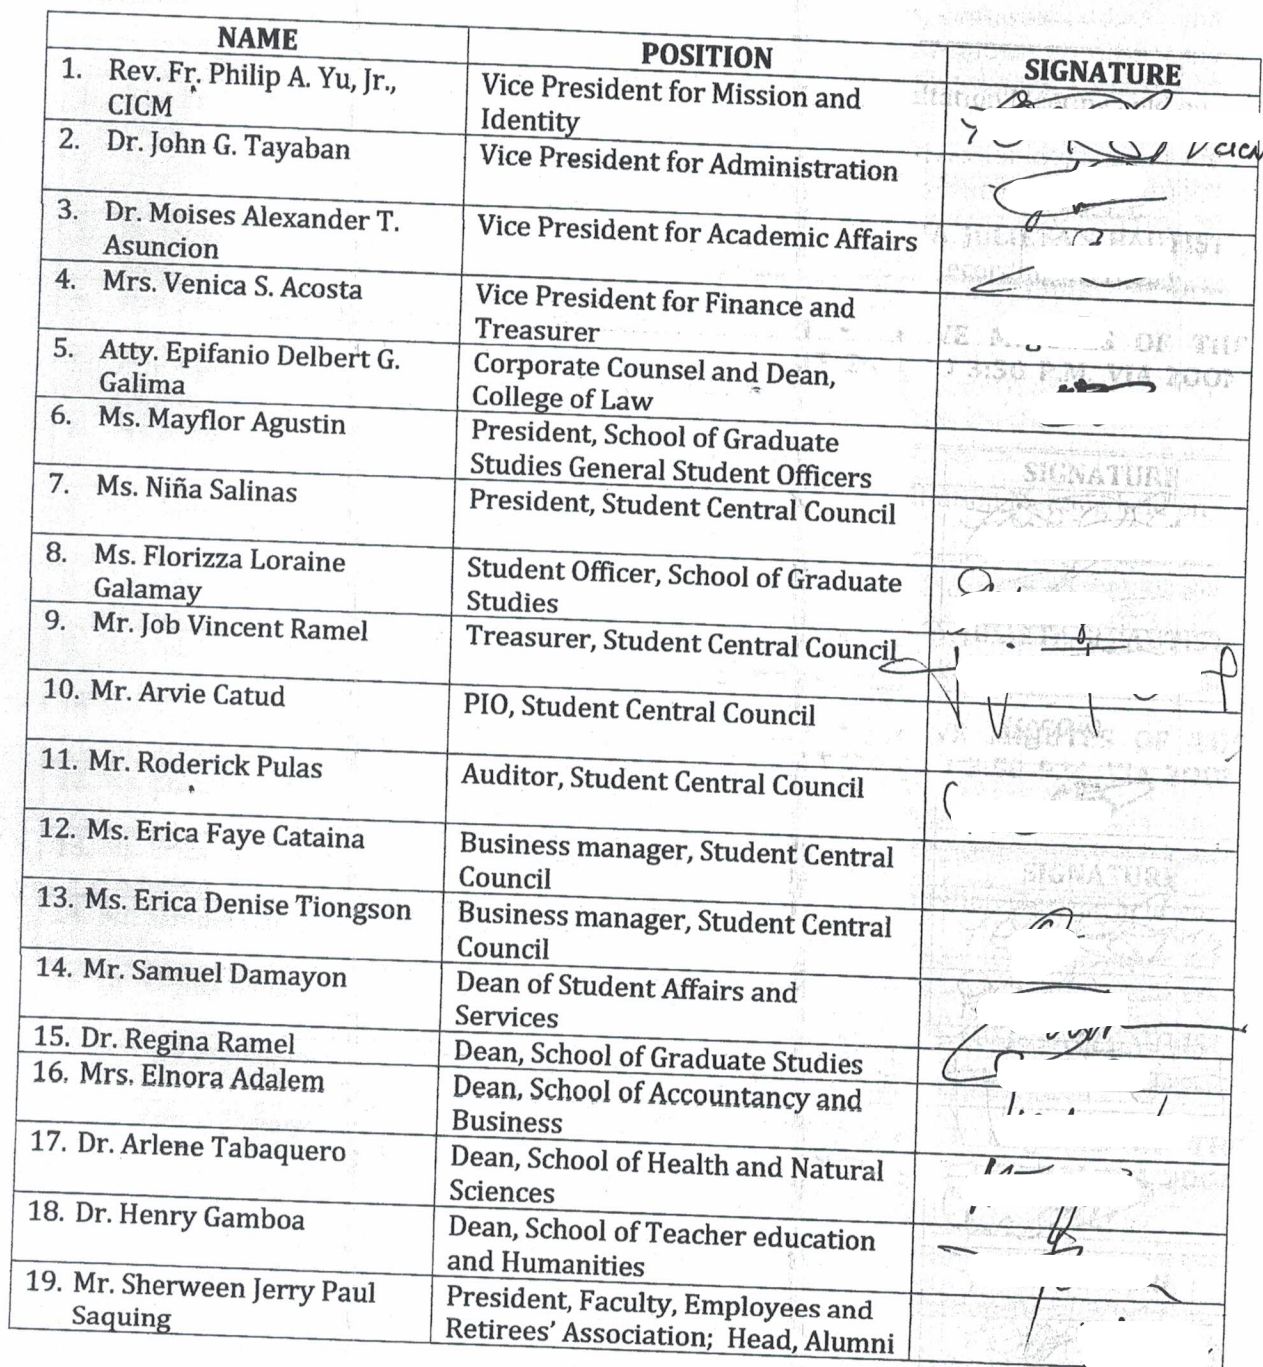 NAME POSITION SIGNATURE
1. Rev. Fr. Philip A. Yu, Jr., Vice President for Mission and
CICM Identity
2. Dr. John G. Tayaban Vice President for Administration
3. Dr. Moises Alexander T. Vice President for Academic Affairs
Asuncion
4. Mrs. Venica S. Acosta Vice President for Finance and
Treasurer
5. Atty. Epifanio Delbert G. Corporate Counsel and Dean,
Galima College of Law
6. Ms. Mayflor Agustin President, School of Graduate
Studies General Student Officers
7. Ms. Niña Salinas President, Student Central Council
8. Ms. Florizza Loraine Student Officer, School of Graduate
Galamay Studies
9. Mr. Job Vincent Ramel Treasurer, Student Central Council
10. Mr. Arvie Catud PIO, Student Central Council
11. Mr. Roderick Pulas Auditor, Student Central Council
12. Ms. Erica Faye Cataina Business manager, Student Central
Council
13. Ms. Erica Denise Tiongson Business manager, Student Central
Council
14. Mr. Samuel Damayon Dean of Student Affairs and
Services
15. Dr. Regina Ramel Dean, School of Graduate Studies
16. Mrs. Elnora Adalem Dean, School of Accountancy and
Business
17. Dr. Arlene Tabaquero Dean, School of Health and Natural
Sciences
18. Dr. Henry Gamboa Dean, School of Teacher education
and Humanities
19. Mr. Sherween Jerry Paul President, Faculty, Employees and
Saquing Retirees' Association; Head, Alumni